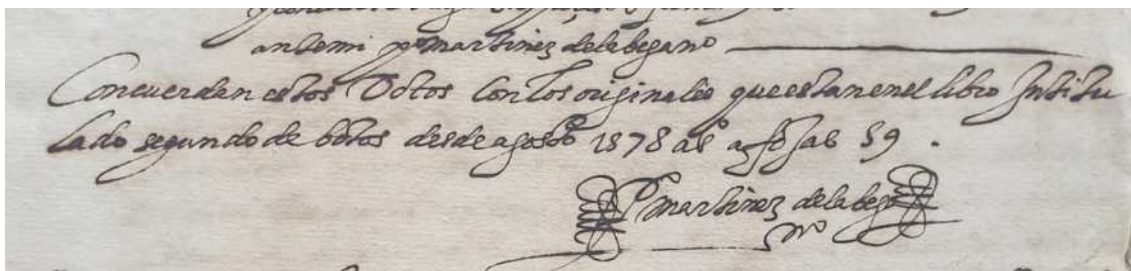 antemi po martinez dela bega no
Concuerdan estos Votos Con los originales que estan en el libro Intitu
lado segundo de botos desde agosto 1578 as a fojas 59 .
Po martinez dela bega
no